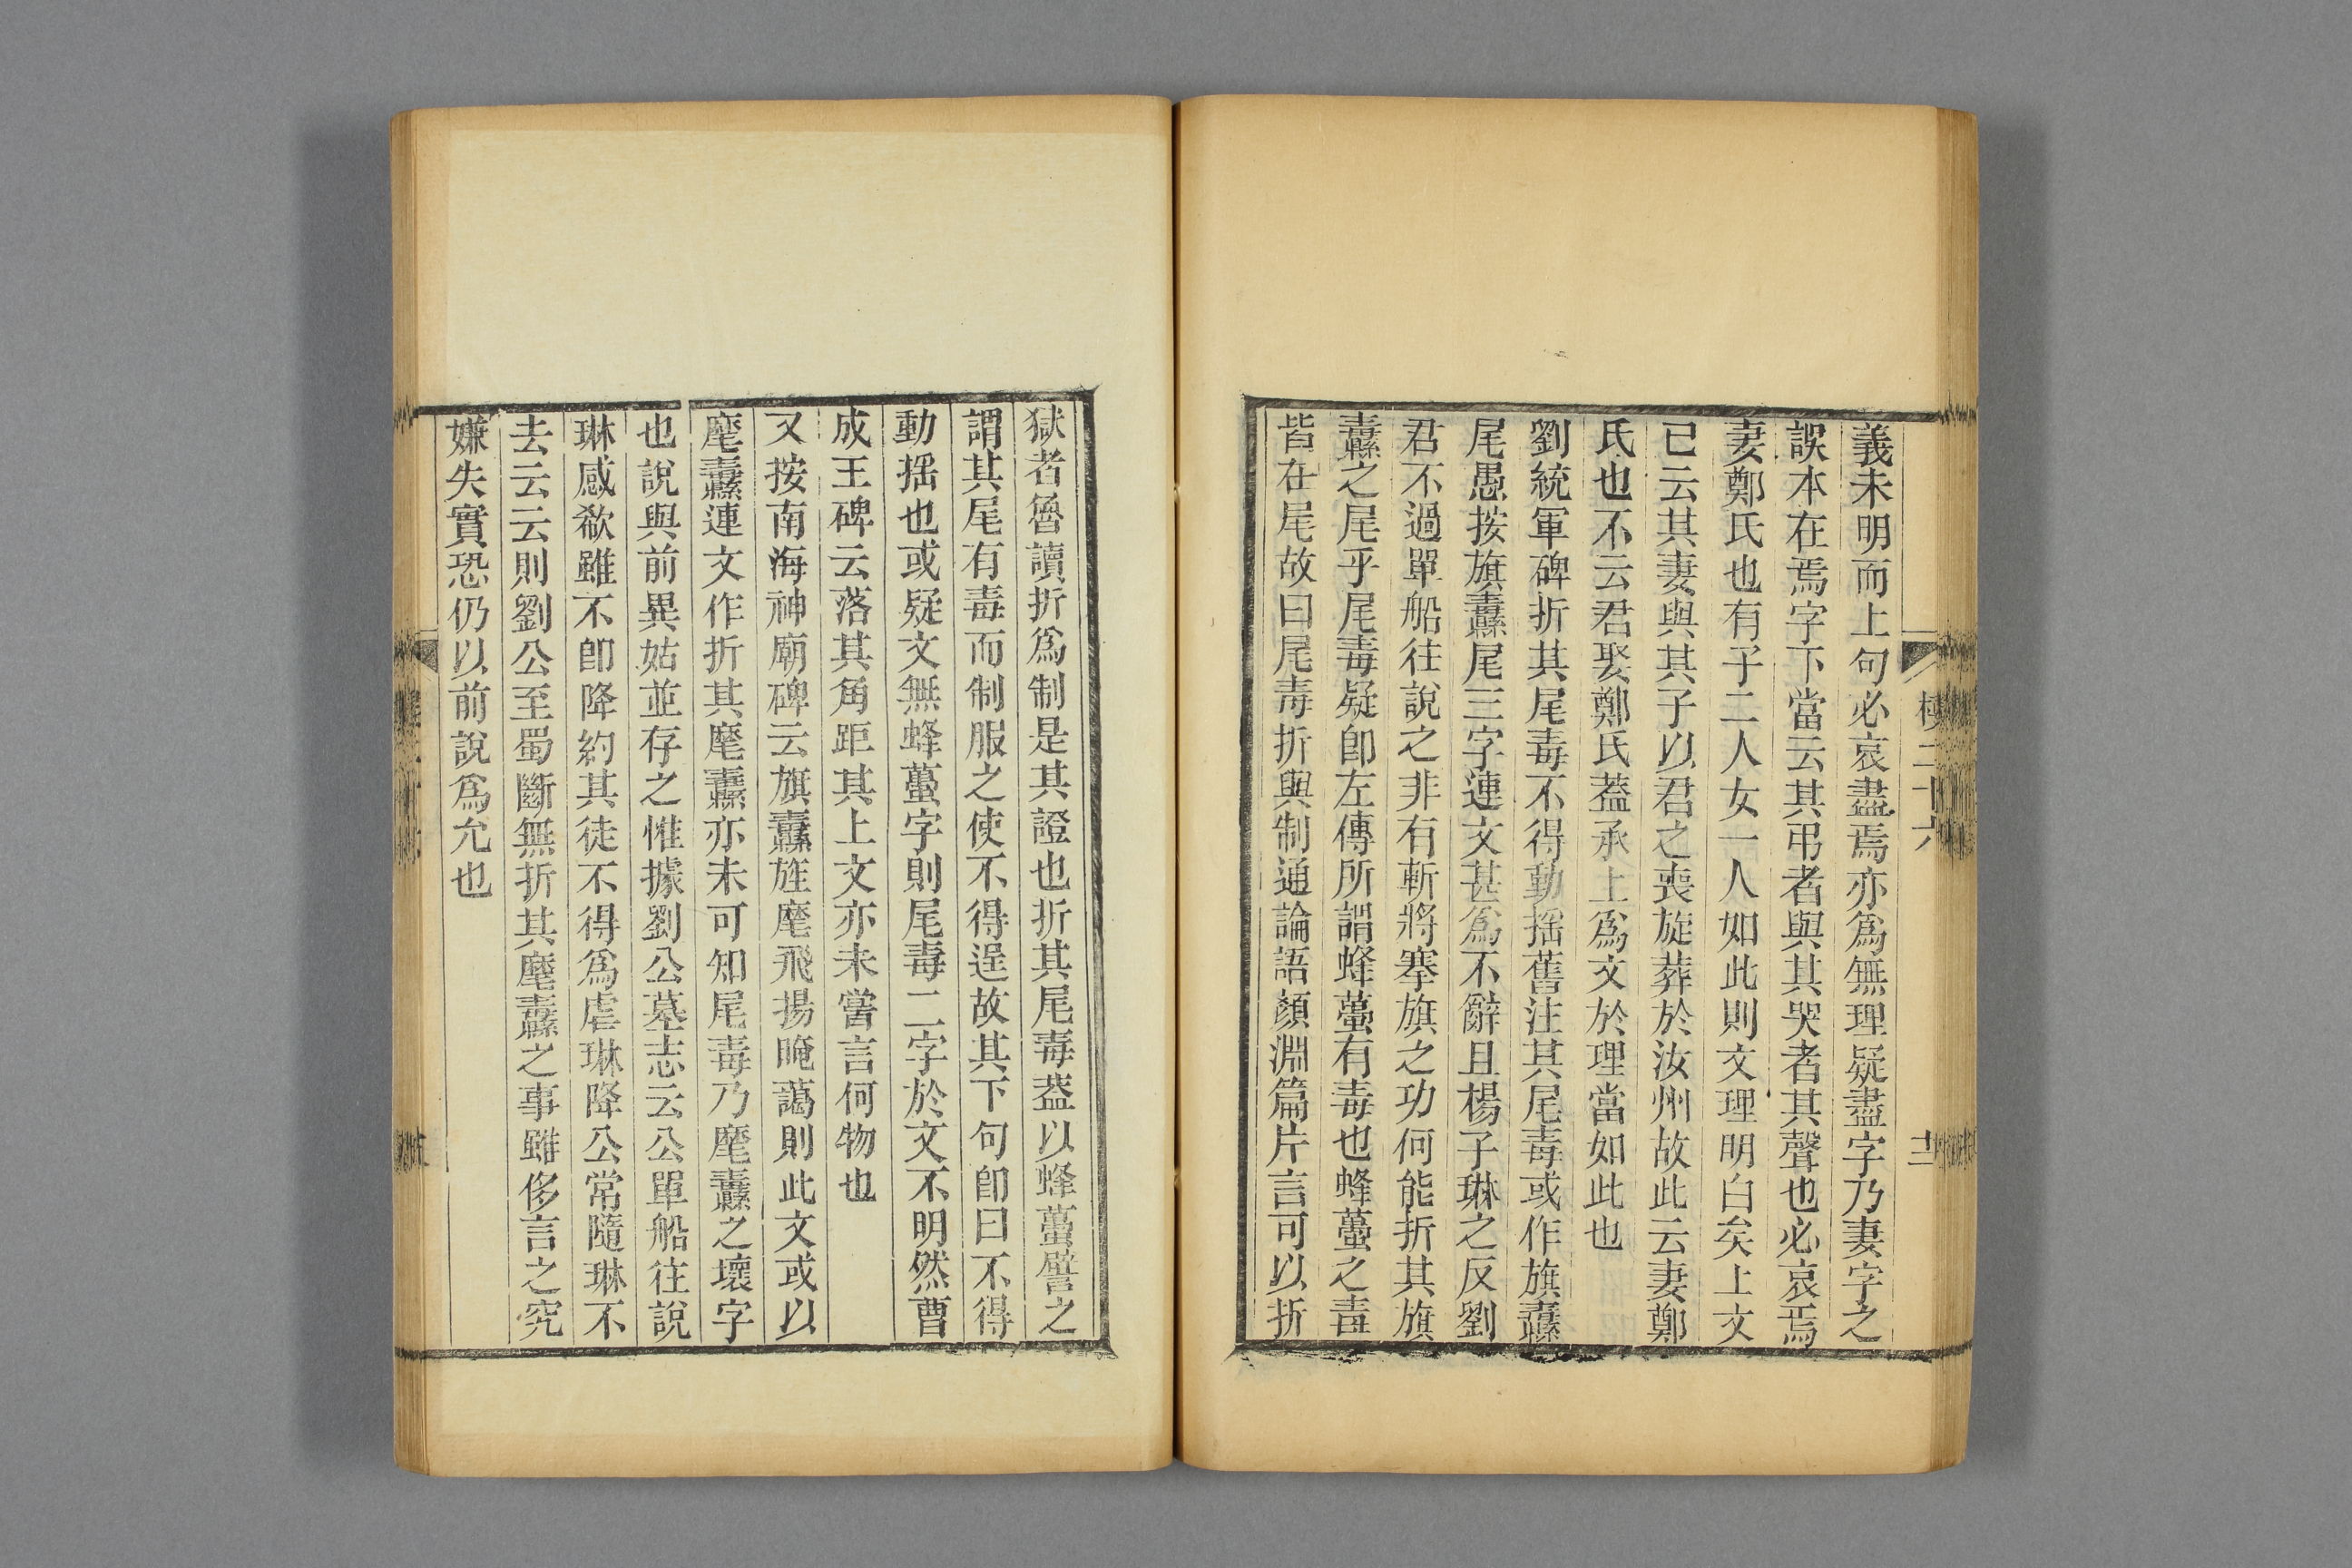 義未明而上句必哀盡焉亦爲無理疑盡字乃妻字之
誤本在焉字下當云其弔者與其哭者其聲也必哀焉
妻鄭氏也有子二人女一人如此則文理明白矣上文
已云其妻與其子以君之喪旋葬於汝州故此云妻鄭
氏也不云君娶鄭氏葢承上爲文於理當如此也
劉統軍碑折其尾毒不得動摇舊注其尾毒或作旗纛
尾愚按旗纛尾三字連文甚爲不辭且楊子琳之反劉
君不過單船往說之非有斬將搴旗之功何能折其旗
纛之尾乎尾毒疑卽左傳所謂蜂蠆有毒也蜂蠆之毒
皆在尾故曰尾毒折與制通論語顏淵篇片言可以折
獄者魯讀折爲制是其證也折其尾毒葢以蜂蠆譬之
謂其尾有毒而制服之使不得逞故其下句卽曰不得
動摇也或疑文無蜂蠆字則尾毒二字於文不明然曹
成王碑云落其角距其上文亦未嘗言何物也
又按南海神廟碑云旗纛旌麾飛揚晻藹則此文或以
麾纛連文作折其麾纛亦未可知尾毒乃麾纛之壞字
也說與前異姑並存之惟據劉公墓志云公單船往說
琳感欷雖不卽降約其徒不得爲虐琳降公常隨琳不
去云云則劉公至蜀斷無折其麾纛之事雖侈言之究
嫌失實恐仍以前說爲允也
二十六